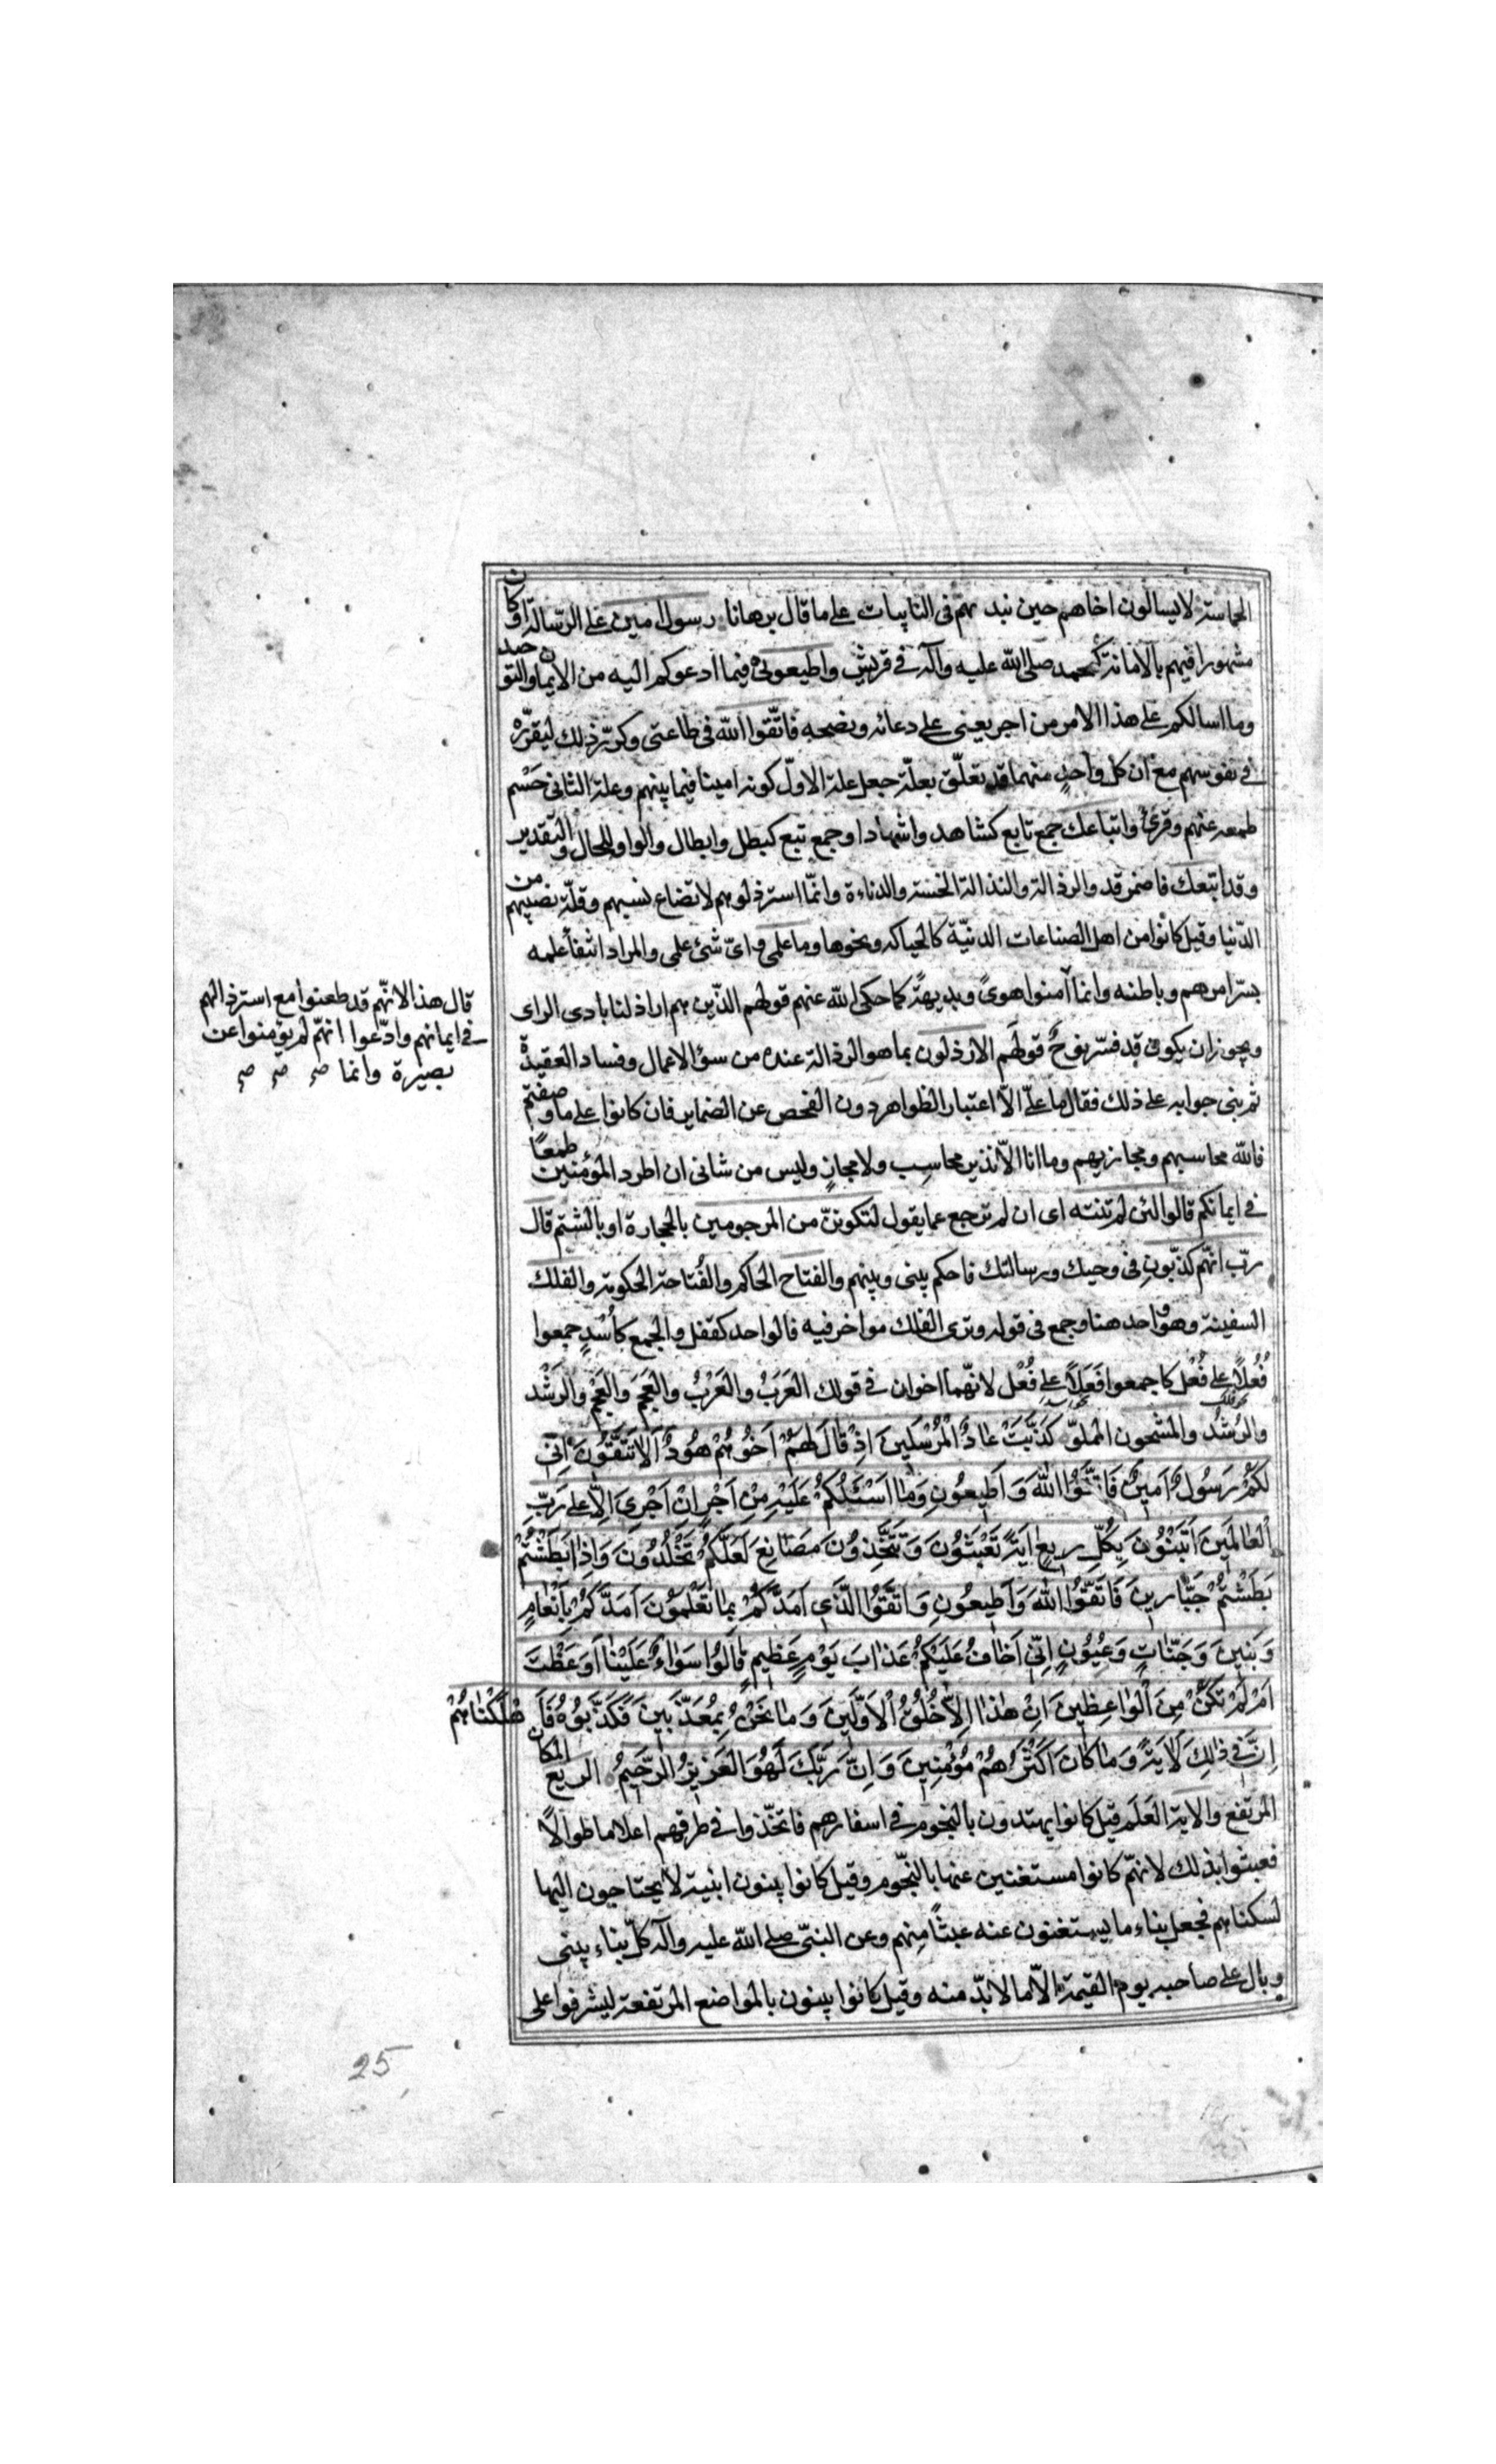 الحماسة لا يسالون اخاهم حين يند بهم فى النايبات على ما قال برهانا رسول امين على الرسالة او كان
مشهورا فيهم بالامانة كمحمد صلى الله عليه وآله فى قريش واطيعونى فيما ادعوكم اليه من الايمان والتوحيد
وما اسالكم على هذا الامر من اجر يعنى على دعائه ونصحه فاتقوا الله فى طاعتى وكرر ذلك ليقرره
فى نفوسهم مع ان كل واحد منهما قد تعلق بعلة جعل علة الاول كونه امينا فيما بينهم وعلة الثانى حسم
طمعه عنهم وقرئ واتباعك جمع تابع كشاهد واشهاد او جمع تبع كبطل وابطال والواو للحال والتقدير
وقد اتبعك فاضمر قد والرذالة والنذالة الخسة والدناءة وانما استرذلوهم لاتضاع نسبهم وقلة نصيبهم من
الدنيا وقيل كانوا من اهل الصناعات الدنية كالحياكه ونحوها وما علمى واى شئ علمى والمراد انتفأ علمه
بسر امرهم وباطنه وانما آمنوا هوى وبديهة كما حكى الله عنهم قولهم الذين هم اراذلنا بادى الراى
ويجوز ان يكون قد فسر نوح قولهم الارذلون بما هو الرذالة عنده من سوء الاعمال وفساد العقيدة
ثم بنى جوابه على ذلك فقال ما على الا اعتبار الظواهر دون الفحص عن الضماير فان كانوا على ما وصفتم
فالله محاسبهم ومجازيهم وما انا الا نذير لا محاسب ولا مجاز وليس من شانى ان اطرد المؤمنين طمعا
فى ايمانكم قالوا لئن لم تنته اى ان لم ترجع عما يقول لتكونن من المرجومين بالحجارة او بالشتم قال
رب انهم كذبون فى وحيك ورسالتك فاحكم بينى وبينهم والفتاح الحاكم والفتاحة الحكومة والفلك
السفينة وهو واحد هنا وجمع فى قوله وترى الفلك مواخر فيه فالواحد كقفل والجمع كأسد جمعوا
فُعلا على فُعل كما جمعوا فَعَلا على فُعْل لانهما اخوان فى قولك العَرَبُ والعُرْبُ والعَجَم والعُجْم والرَشَد
والرُشْد والمشحون المملو كَذَّبَتْ عَادٌ الْمُرْسَلِينَ اِذْ قَالَ لَهُمْ اَخُوهُمْ هُودٌ اَلَا تَتَّقُونَ اِنِّى
لَكُمْ رَسُولٌ اَمِينٌ فَاتَّقُوا اللهَ وَاَطِيعُونِ وَمَا اَسْئَلُكُمْ عَلَيْهِ مِنْ اَجْرٍ اِنْ اَجْرِىَ اِلَّا عَلى رَبِّ
الْعَالَمِينَ اَتَبْنُونَ بِكُلِّ رِيعٍ ايَةً تَعْبَثُونَ وَتَتَّخِذُونَ مَصَانِعَ لَعَلَّكُمْ تَخْلُدُونَ وَاِذَا بَطَشْتُمْ
بَطَشْتُمْ جَبَّارِينَ فَاتَّقُوا اللهَ وَاَطِيعُونِ وَاتَّقُوا الَّذِى اَمَدَّكُمْ بِمَا تَعْلَمُونَ اَمَدَّكُمْ بِاَنْعَامٍ
وَبَنِينَ وَجَنَّاتٍ وَعُيُونٍ اِنِّى اَخَافُ عَلَيْكُمْ عَذَابَ يَوْمٍ عَظِيمٍ قَالُوا سَوَاءٌ عَلَيْنَا اَوَعَظْتَ
اَمْ لَمْ تَكُنْ مِنَ الْوَاعِظِينَ اِنْ هذَا اِلَّا خُلُقُ الْاَوَّلِينَ وَمَا نَحْنُ بِمُعَذَّبِينَ فَكَذَّبُوهُ فَاَهْلَكْنَاهُمْ
اِنَّ فى ذلِكَ لَايَةً وَمَا كَانَ اَكْثَرُهُمْ مُؤْمِنِينَ وَاِنَّ رَبَّكَ لَهُوَ الْعَزِيزُ الرَّحِيمُ الريع المكان
المرتفع والاية العَلَم قيل كانوا يهتدون بالنجوم فى اسفارهم فاتخذوا فى طرقهم اعلاما طوالا
فعبثوا بذلك لانهم كانوا مستغنين عنها بالنجوم وقيل كانوا يبنون ابنية لا يحتاجون اليها
لسكناهم فجعل بناء ما يستغنون عنه عبثا منهم وعن النبى صلى الله عليه وآله كل بناء يبنى
وبال على صاحبه يوم القيمة الا ما لا بد منه وقيل كانوا يبنون بالمواضع المرتفعة ليشرفوا على
قال هذا لانهم قد طعنوا مع استرذالهم
فى ايمانهم وادعوا انهم لم يؤمنوا عن
بصيرة وانما صح صح صح
25